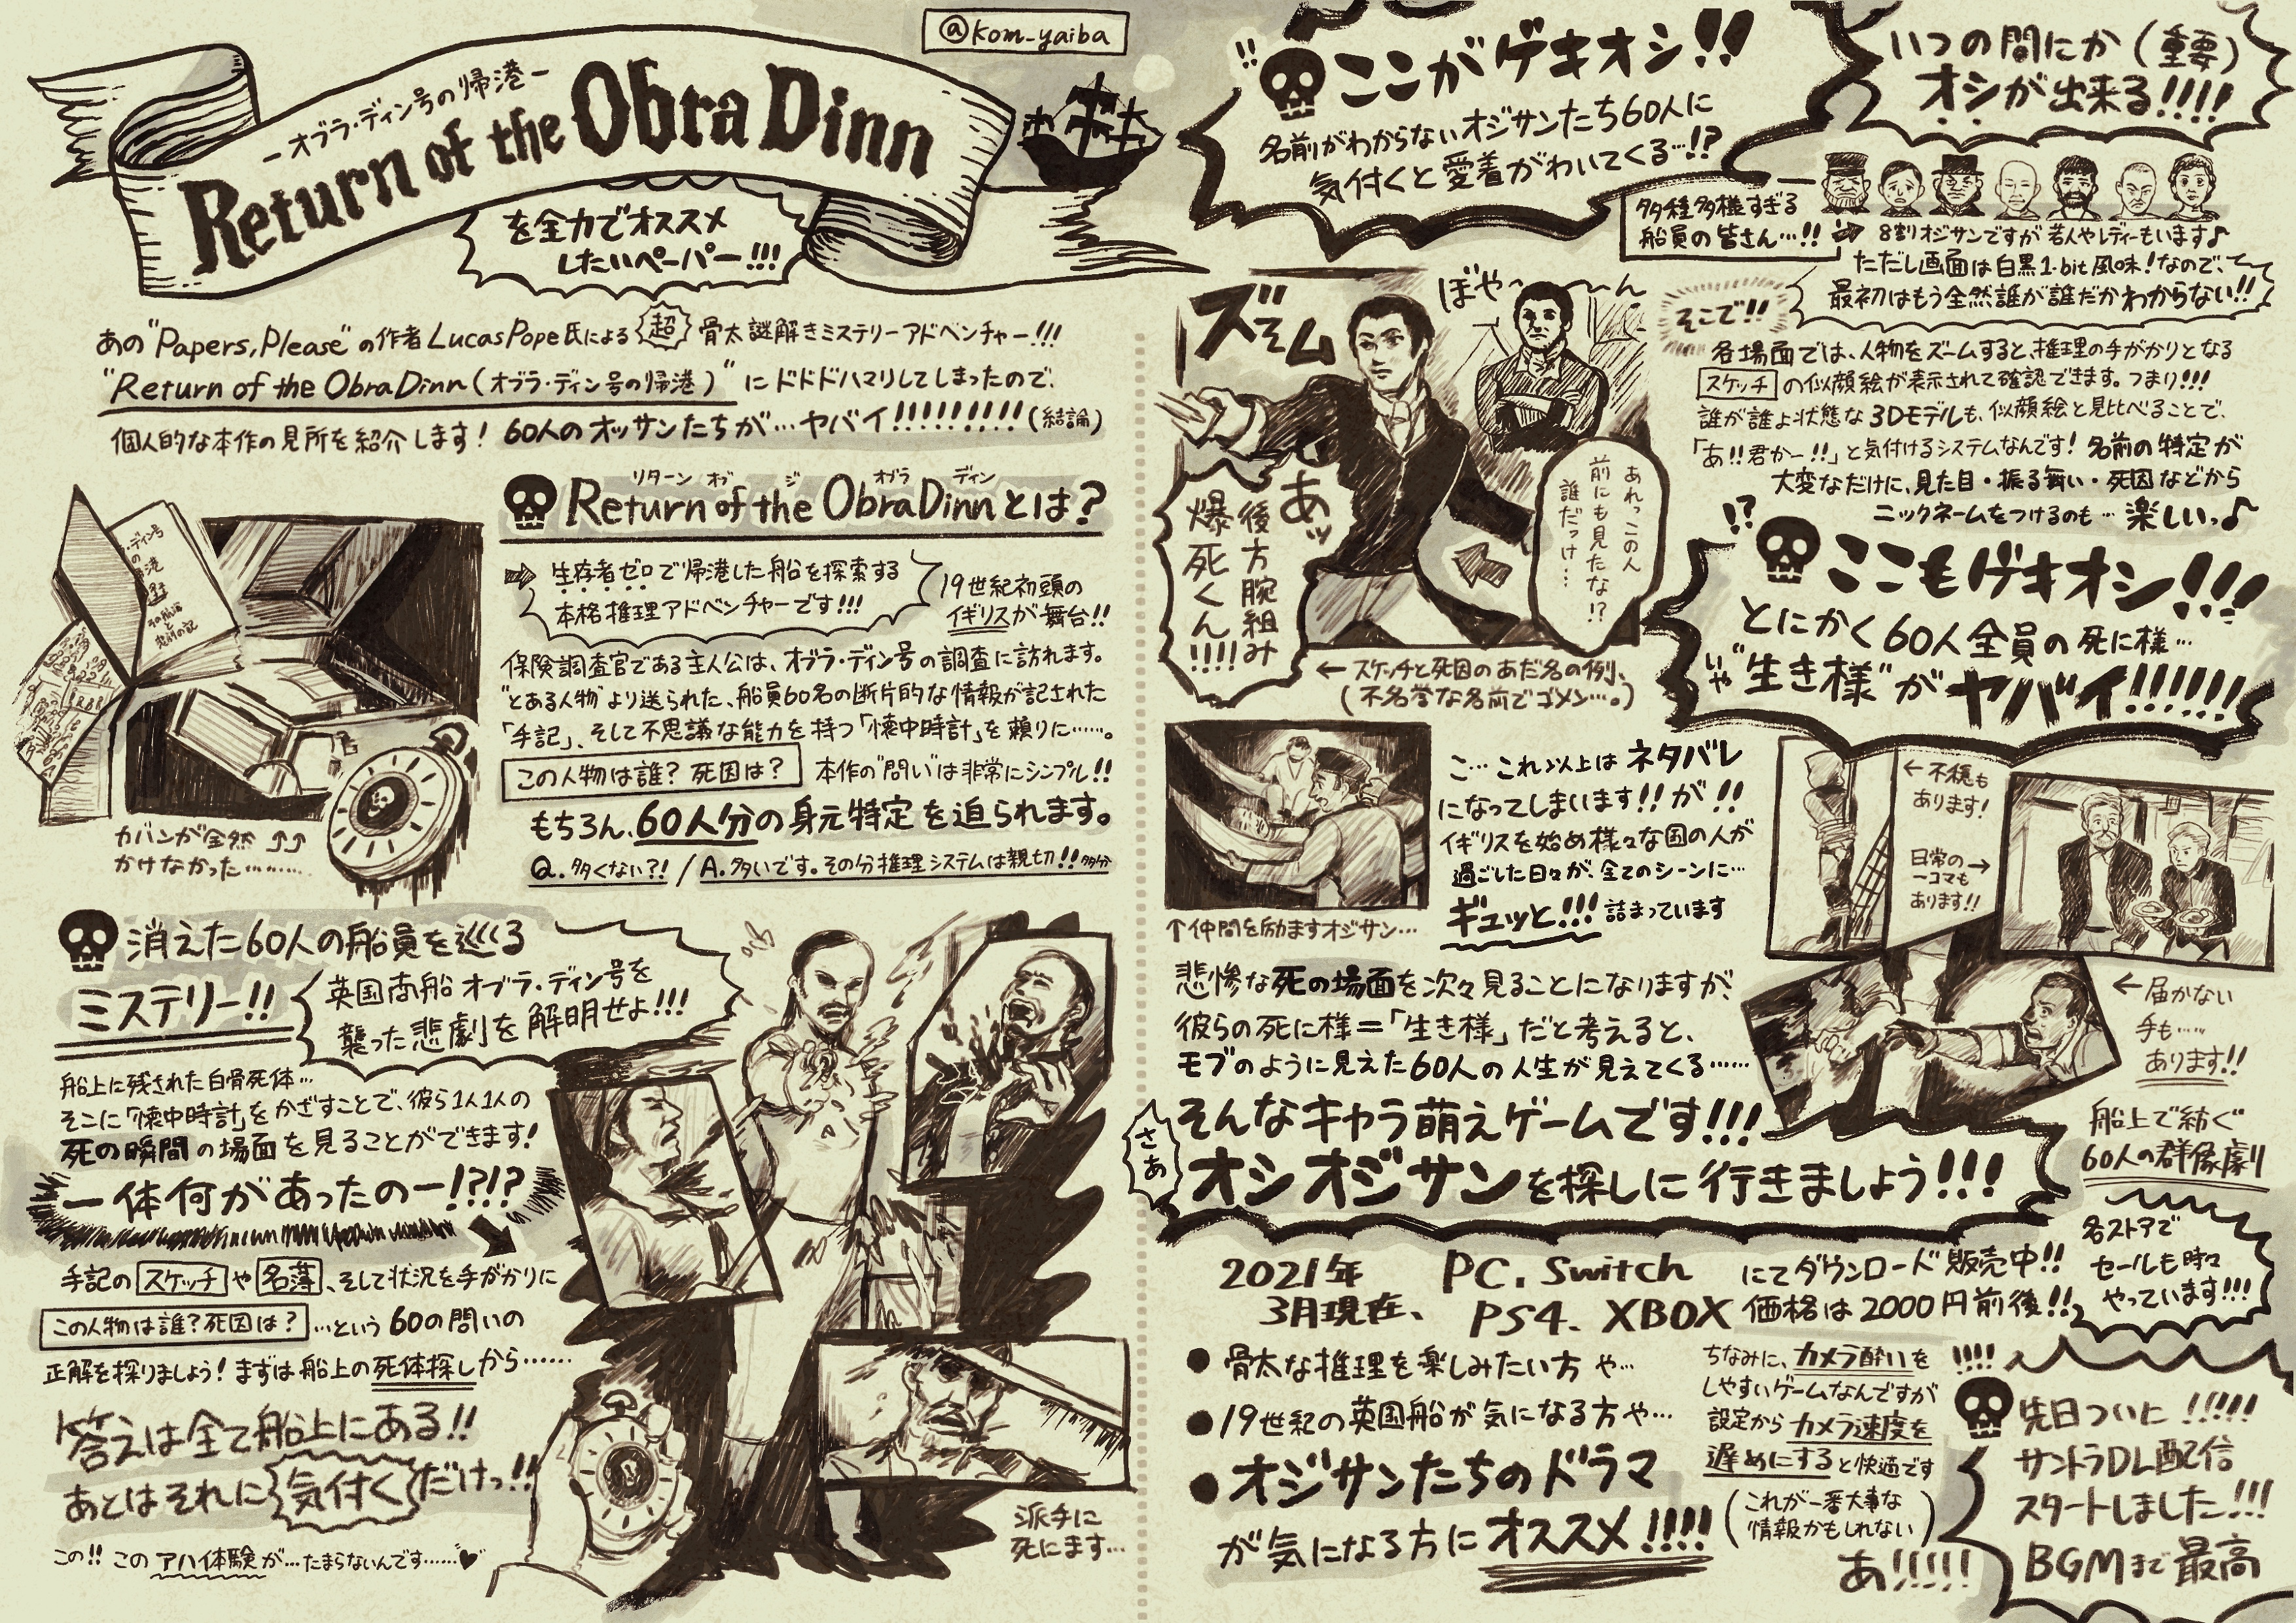 @kom_yaiba
－オブラ・ディン号の帰港－
Return of the Obra Dinn
を全力でオススメ
したいペーパー!!!
あの"Papers, Please"の作者 Lucas Pope氏による 超 骨太謎解きミステリーアドベンチャー!!!
"Return of the Obra Dinn(オブラ・ディン号の帰港)"にドドドハマりしてしまったので、
個人的な本作の見所を紹介します! 60人のオッサンたちが…ヤバイ!!!!!!!!!(結論)
リターン オブ ジ オブラ ディン
Return of the Obra Dinnとは?
生存者ゼロで帰港した船を探索する
本格推理アドベンチャーです!!!
19世紀初頭の
イギリスが舞台!!
保険調査官である主人公は、オブラ・ディン号の調査に訪れます。
"とある人物"より送られた、船員60名の断片的な情報が記された
「手記」、そして不思議な能力を持つ「懐中時計」を頼りに……。
この人物は誰? 死因は? 本作の"問い"は非常にシンプル!!
もちろん、60人分の身元特定を迫られます。
Q. 多くない?! / A. 多いです。その分推理システムは親切!! 多分
カバンが全然 ↑↑
かけなかった………
消えた60人の船員を巡る
ミステリー!!
英国商船オブラ・ディン号を
襲った悲劇を解明せよ!!!
船上に残された白骨死体…
そこに「懐中時計」をかざすことで、彼ら1人1人の
死の瞬間の場面を見ることができます!
一体何があったのー!?!?
手記の スケッチ や 名簿、そして状況を手がかりに
この人物は誰? 死因は? …という 60の問いの
正解を探りましょう! まずは船上の死体探しから……
答えは全て船上にある!!
あとはそれに 気付く だけっ!!
この!! この アハイ体験が…たまらないんです……♥
派手に
死にます…
ここがゲキオシ!!
名前がわからないオジサンたち60人に
気付くと愛着がわいてくる…!?
いつの間にか(重要)
オシが出来る!!!!
多種多様すぎる
船員の皆さん…!!
8割オジサンですが 若人やレディーもいます♪
ただし画面は白黒1-bit風味!なので、
最初はもう全然誰が誰だかわからない!!
そこで!!
各場面では、人物をズームすると、推理の手がかりとなる
スケッチ の似顔絵が表示されて確認できます。つまり!!!
誰が誰よ状態な3Dモデルも、似顔絵と見比べることで、
「あ!!君かー!!」と気付けるシステムなんです! 名前の特定が
大変なだけに、見た目・振る舞い・死因などから
ニックネームをつけるのも… 楽しいっ♪
ズーム
ぼや～～ん
あれっこの人
前にも見たな!?
誰だっけ…
あッ
後方腕組み
爆死くん!!!!
← スケッチと死因のあだ名の例、
(不名誉な名前でゴメン…。)
!?
ここもゲキオシ!!!
とにかく60人全員の死に様…
いや"生き様"がヤバイ!!!!!!
↑仲間を励ますオジサン…
こ… これ以上は ネタバレ
になってしまいます!! が!!
イギリスを始め様々な国の人が
過ごした日々が、全てのシーンに…
ギュッと!!! 詰まっています
← 不穏も
あります!
日常の →
一コマも
あります!!
← 届かない
手も……
あります!!
悲惨な死の場面を次々見ることになりますが、
彼らの死に様＝「生き様」だと考えると、
モブのように見えた60人の人生が見えてくる……
そんなキャラ萌えゲームです!!!
さあ
オシオジサンを探しに行きましょう!!!
船上で紡ぐ
60人の群像劇
2021年
3月現在、
PC. Switch
PS4. XBOX
にてダウンロード販売中!!
価格は2000円前後!!
各ストアで
セールも時々
やっています!!!
● 骨太な推理を楽しみたい方 や…
● 19世紀の英国船が気になる方や…
● オジサンたちのドラマ
が気になる方にオススメ!!!!
ちなみに、カメラ酔いを
しやすいゲームなんですが
設定からカメラ速度を
遅めにすると快適です
(これが一番大事な
情報かもしれない)
あ!!!!!
!!!!
先日ついに!!!!!
サントラDL配信
スタートしました!!!
BGMまで最高